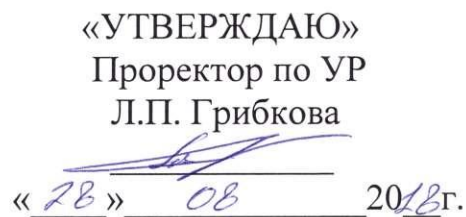 «УТВЕРЖДАЮ»
Проректор по УР
Л.П. Грибкова
« 28 » 08 2018г.